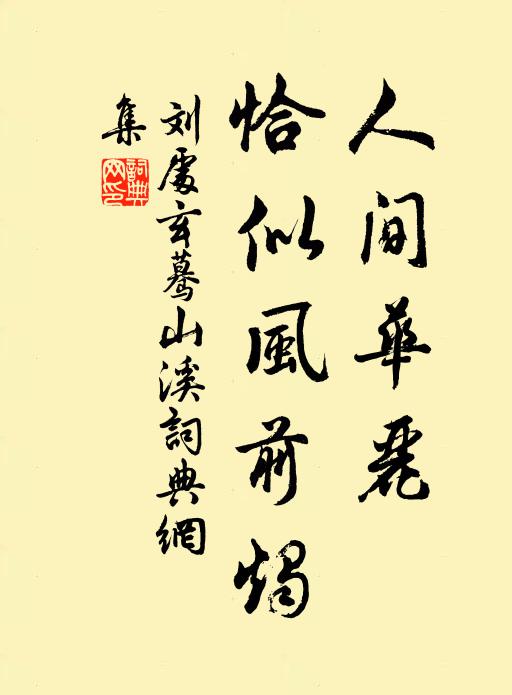 人间華麗
恰似風前燭
刘處玄驀山溪詞典網
集
詞典網印